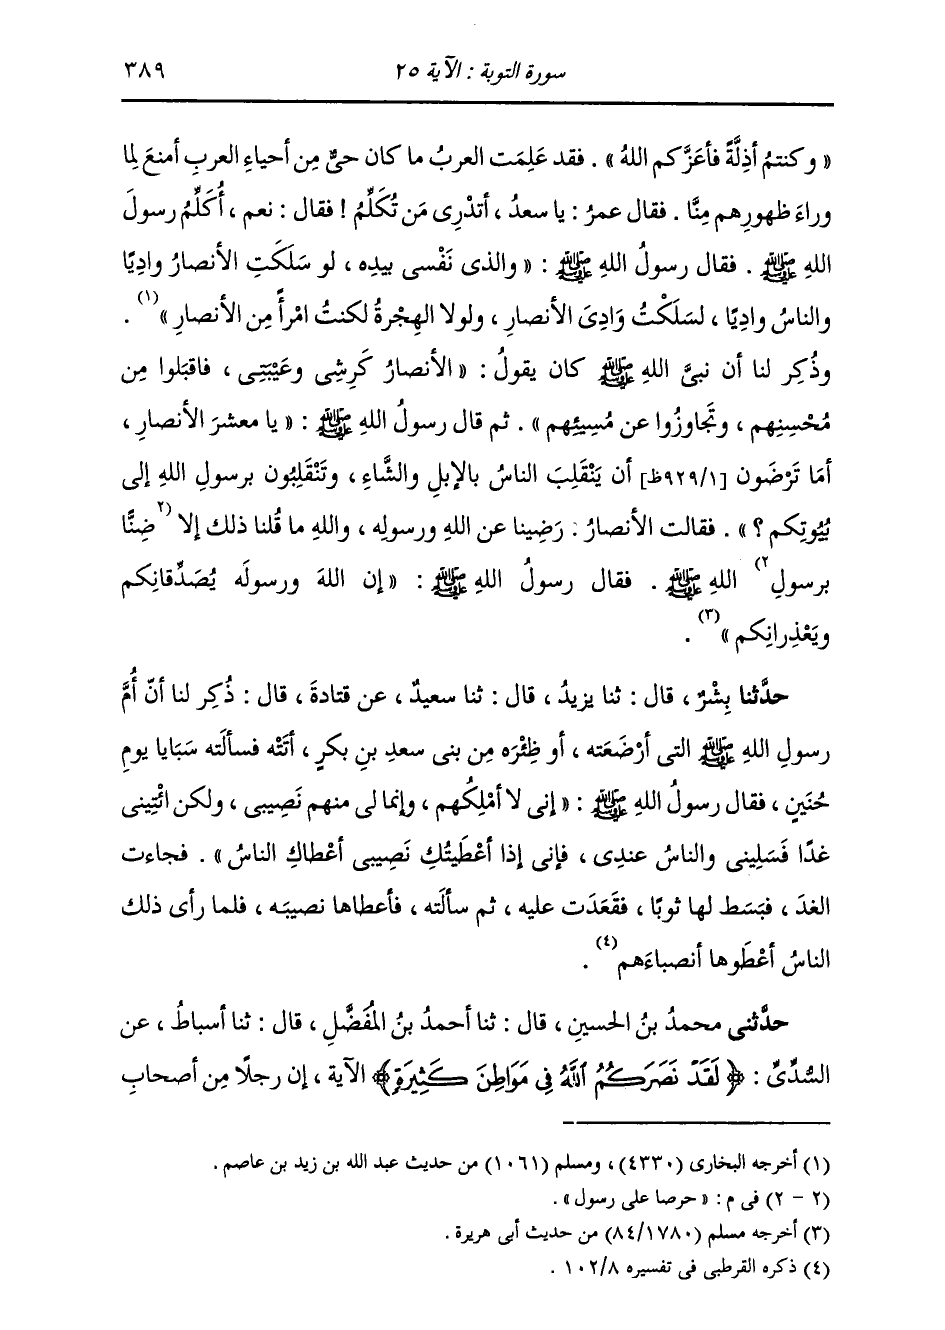 سورة التوبة : الآية ٢٥ ٣٨٩
« وكنتمُ أذِلَّةً فأعَزَّكم اللهُ » . فقد عَلِمَت العربُ ما كان حىٌّ مِن أحياءِ العربِ أمنعَ لِما
وراءَ ظهورِهم مِنَّا . فقال عمرُ : يا سعدُ ، أتدْرِى مَن تُكَلِّمُ ! فقال : نعم ، أُكَلِّمُ رسولَ
اللهِ ﷺ . فقال رسولُ اللهِ ﷺ : « والذى نَفْسى بيدِه ، لو سَلَكَتِ الأنصارُ وادِيًا
والناسُ وادِيًا ، لسَلَكْتُ وَادِىَ الأنصارِ ، ولولا الهِجْرةُ لكنتُ امْرأً مِن الأنصارِ »(١) .
وذُكِر لنا أن نبىَّ اللهِ ﷺ كان يقولُ : « الأنصارُ كَرِشِى وعَيْبَتِى ، فاقبَلوا مِن
مُحْسِنِهم ، وتَجاوزُوا عن مُسِيئِهم » . ثم قال رسولُ اللهِ ﷺ : « يا معشرَ الأنصارِ ،
أمَا تَرْضَون [٩٢٩/١ظ] أن يَنْقَلِبَ الناسُ بالإبلِ والشَّاءِ ، وتَنْقَلِبُون برسولِ اللهِ إلى
بُيُوتِكم ؟ » . فقالت الأنصارُ : رَضِينا عن اللهِ ورسولِه ، واللهِ ما قُلنا ذلك إلا (٢ضِنًّا
برسولِ٢) اللهِ ﷺ . فقال رسولُ اللهِ ﷺ : « إن اللهَ ورسولَه يُصَدِّقانِكم
ويَعْذِرانِكم »(٣) .
حدَّثنا بِشْرٌ ، قال : ثنا يزيدُ ، قال : ثنا سعيدٌ ، عن قتادةَ ، قال : ذُكِر لنا أنّ أُمَّ
رسولِ اللهِ ﷺ التى أرْضَعَته ، أو ظِئْرَه مِن بنى سعدِ بنِ بكرٍ ، أتَتْه فسألَته سَبَايا يومِ
حُنَينٍ ، فقال رسولُ اللهِ ﷺ : « إنى لا أمْلِكُهم ، وإنما لى منهم نَصِيبى ، ولكن ائْتِينى
غدًا فَسَلِينى والناسُ عندِى ، فإنى إذا أعْطَيتُكِ نَصِيبى أعْطاكِ الناسُ » . فجاءت
الغدَ ، فبَسَط لها ثوبًا ، فقَعَدَت عليه ، ثم سألَته ، فأعطاها نصيبَه ، فلما رأى ذلك
الناسُ أعْطَوها أنصباءَهم(٤) .
حدَّثنى محمدُ بنُ الحسينِ ، قال : ثنا أحمدُ بنُ المُفَضَّلِ ، قال : ثنا أسباطُ ، عن
السُّدِّىِّ : ﴿ لَقَدْ نَصَرَكُمُ ٱللَّهُ فِى مَوَاطِنَ كَثِيرَةٍ﴾ الآية ، إن رجلًا مِن أصحابِ
(١) أخرجه البخارى (٤٣٣٠) ، ومسلم (١٠٦١) من حديث عبد الله بن زيد بن عاصم .
(٢ - ٢) فى م : « حرصا على رسول » .
(٣) أخرجه مسلم (٨٤/١٧٨٠) من حديث أبى هريرة .
(٤) ذكره القرطبى فى تفسيره ١٠٢/٨ .